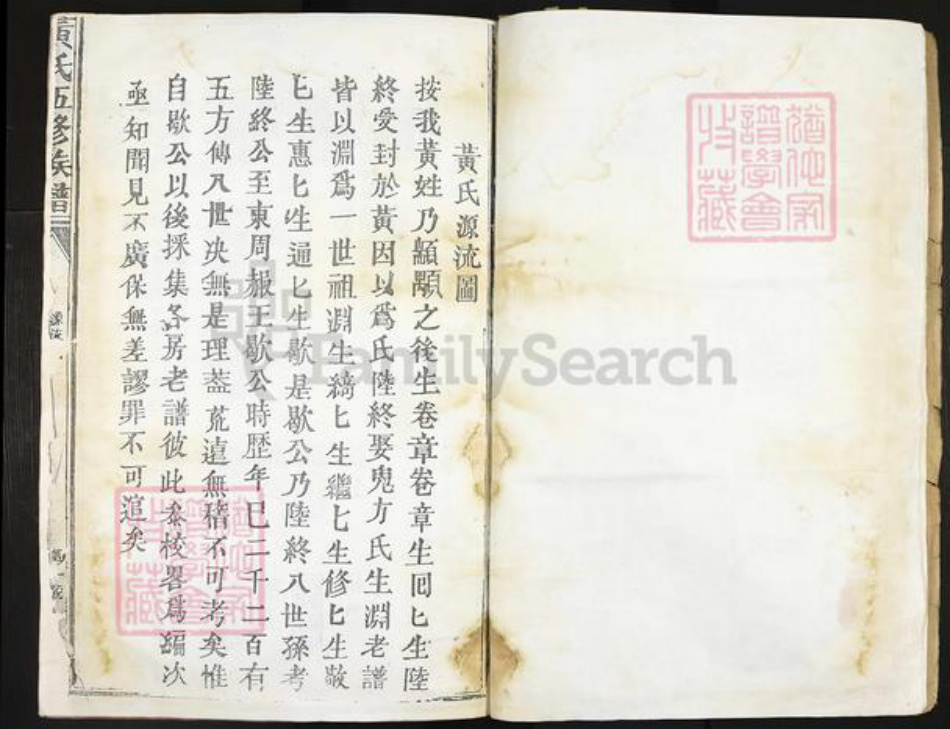 黃氏源流圖
按我黃姓乃顓頊之後生卷章卷章生囘匕生陸
終受封於黃因以爲氏陸終娶鬼方氏生淵老譜
皆以淵爲一世祖淵生綺匕生繼匕生修匕生敬
匕生惠匕生通匕生歇是歇公乃陸終八世孫考
陸終公至東周赧王歇公時歷年巳二千二百有
五方傳八世决無是理葢荒遠無稽不可考矣惟
自歇公以後採集各房老譜彼此叅校畧爲編次
亟知聞見不廣保無差謬罪不可逭矣
黃氏五修族譜
源流
FamilySearch